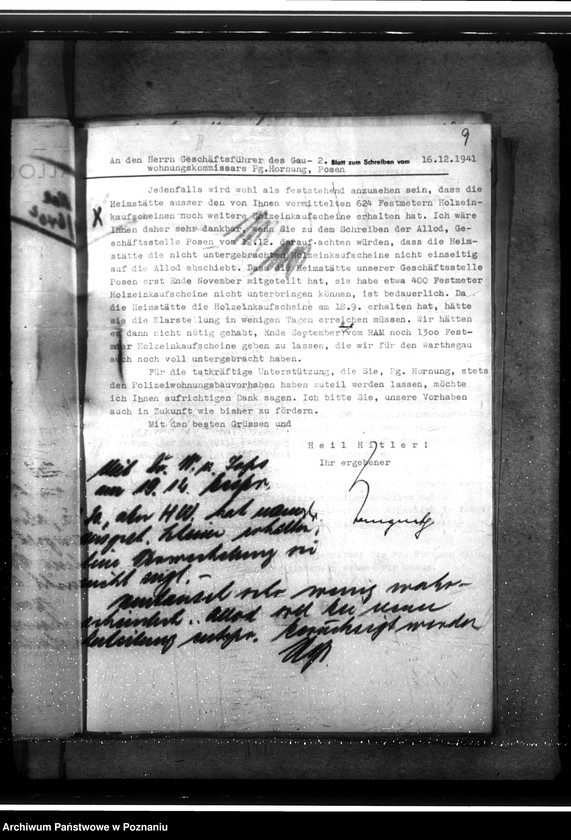 9
An den Herrn Geschäftsführer des Gau- 2. Blatt zum Schreiben vom 16.12.1941
wohnungskommissars Pg.Hornung, Posen
Jedenfalls wird wohl als feststehend anzusehen sein, dass die
Heimstätte ausser den von Ihnen vermittelten 624 Festmetern Holzein-
X kaufscheinen noch weitere Holzeinkaufscheine erhalten hat. Ich wäre
Ihnen daher sehr dankbar, wenn Sie zu dem Schreiben der Allod, Ge-
schäftsstelle Posen vom 12.12. darauf achten würden, dass die Heim-
stätte die nicht untergebrachten Holzeinkaufscheine nicht einseitig
auf die Allod abschiebt. Dass die Heimstätte unserer Geschäftsstelle
Posen erst Ende November mitgeteilt hat, sie habe etwa 400 Festmeter
Holzeinkaufscheine nicht unterbringen können, ist bedauerlich. Da
die Heimstätte die Holzeinkaufscheine am 18.9. erhalten hat, hätte
sie die Klarstellung in wenigen Tagen erreichen müssen. Wir hätten
es dann nicht nötig gehabt, Ende September vom RAM noch 13oo Fest-
meter Holzeinkaufscheine geben zu lassen, die wir für den Warthegau
auch noch voll untergebracht haben.
Für die tatkräftige Unterstützung, die Sie, Pg. Hornung, stets
den Polizeiwohnungsbauvorhaben haben zuteil werden lassen, möchte
ich Ihnen aufrichtigen Dank sagen. Ich bitte Sie, unsere Vorhaben
auch in Zukunft wie bisher zu fördern.
Mit den besten Grüssen und
Heil Hitler!
Ihr ergebener
Mit
am 19.12.
hat
kleine
eine
nicht
sehr wenig wahr-
scheinlich. Allod soll bei neuer
werden
Archiwum Państwowe w Poznaniu